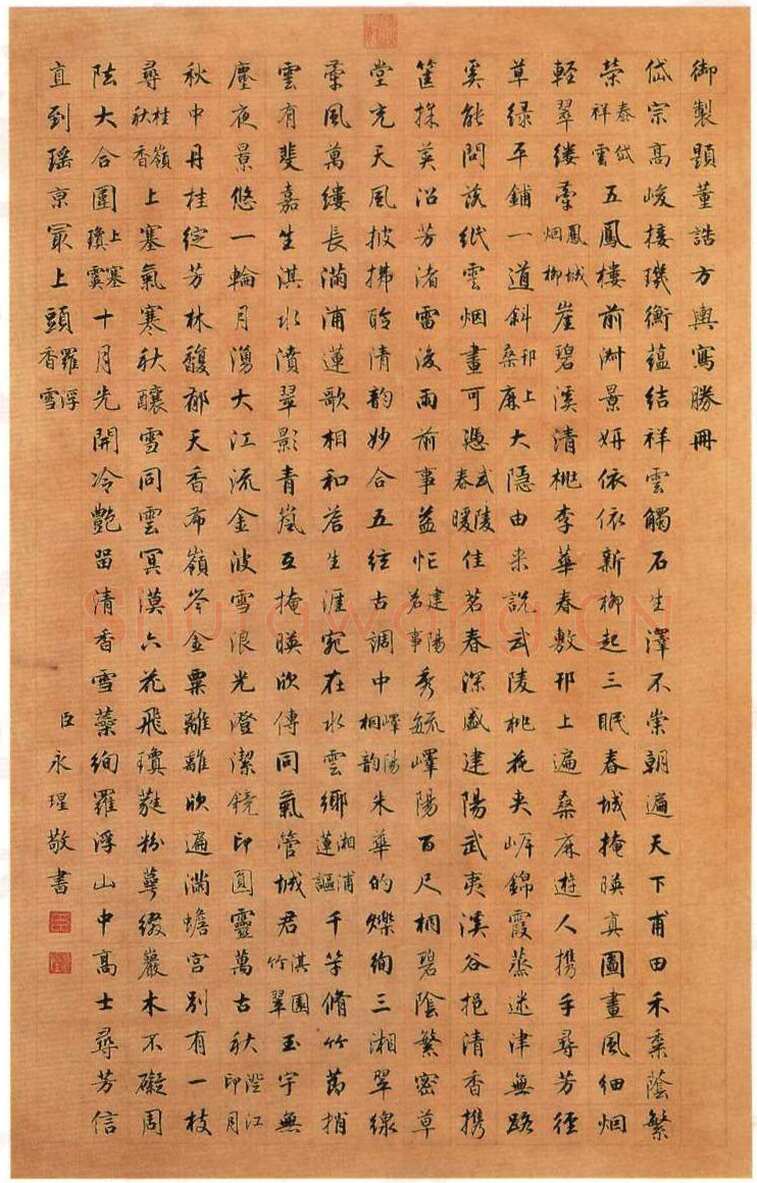 御製題董誥方輿寫勝冊
岱宗高峻接璣衡蘊結祥雲觸石生澤不崇朝遍天下甫田禾黍蔭繁
榮泰岱祥雲五鳳樓前淑景妍依依新柳起三眠春城掩暎真圖畫風細烟
輕翠縷牽鳳城烟柳崖碧溪清桃李華春敷邗上遍桑麻遊人攜手尋芳徑
草綠平鋪一道斜邗上桑麻大隱由来說武陵桃花夾岸錦霞蒸迷津無路
奚能問落紙雲烟畫可憑武陵春暖佳茗春深盛建陽武夷溪谷挹清香攜
筐採英沿芳渚雷後雨前事益忙建陽茗事秀毓嶧陽百尺桐碧陰繁密草
堂充天風披拂聆清韵妙合五絃古調中嶧陽桐韵朱華的爍絢三湘翠線
牽風萬縷長滿浦蓮歌相和答生涯宛在水雲鄉湘浦蓮謳千竿脩竹梢
雲有斐嘉生淇水濆翠影青嵐互掩暎欣傳同氣管城君淇園竹翠玉宇無
塵夜景悠一輪月湧大江流金波雪浪光澄潔鏡印圓靈萬古秋澄江印月
秋中丹桂綻芳林馥郁天香布嶺岑金粟離離欣遍滿蟾宮別有一枝
尋桂嶺秋香上塞氣寒秋釀雪同雲冥漠六花飛瓊蕤粉萼綴巖木不礙周
阹大合圍上塞瓊霙十月先開冷艷留清香雪蘂絢羅浮山中高士尋芳信
直到瑤京最上頭羅浮香雪
臣永瑆敬書